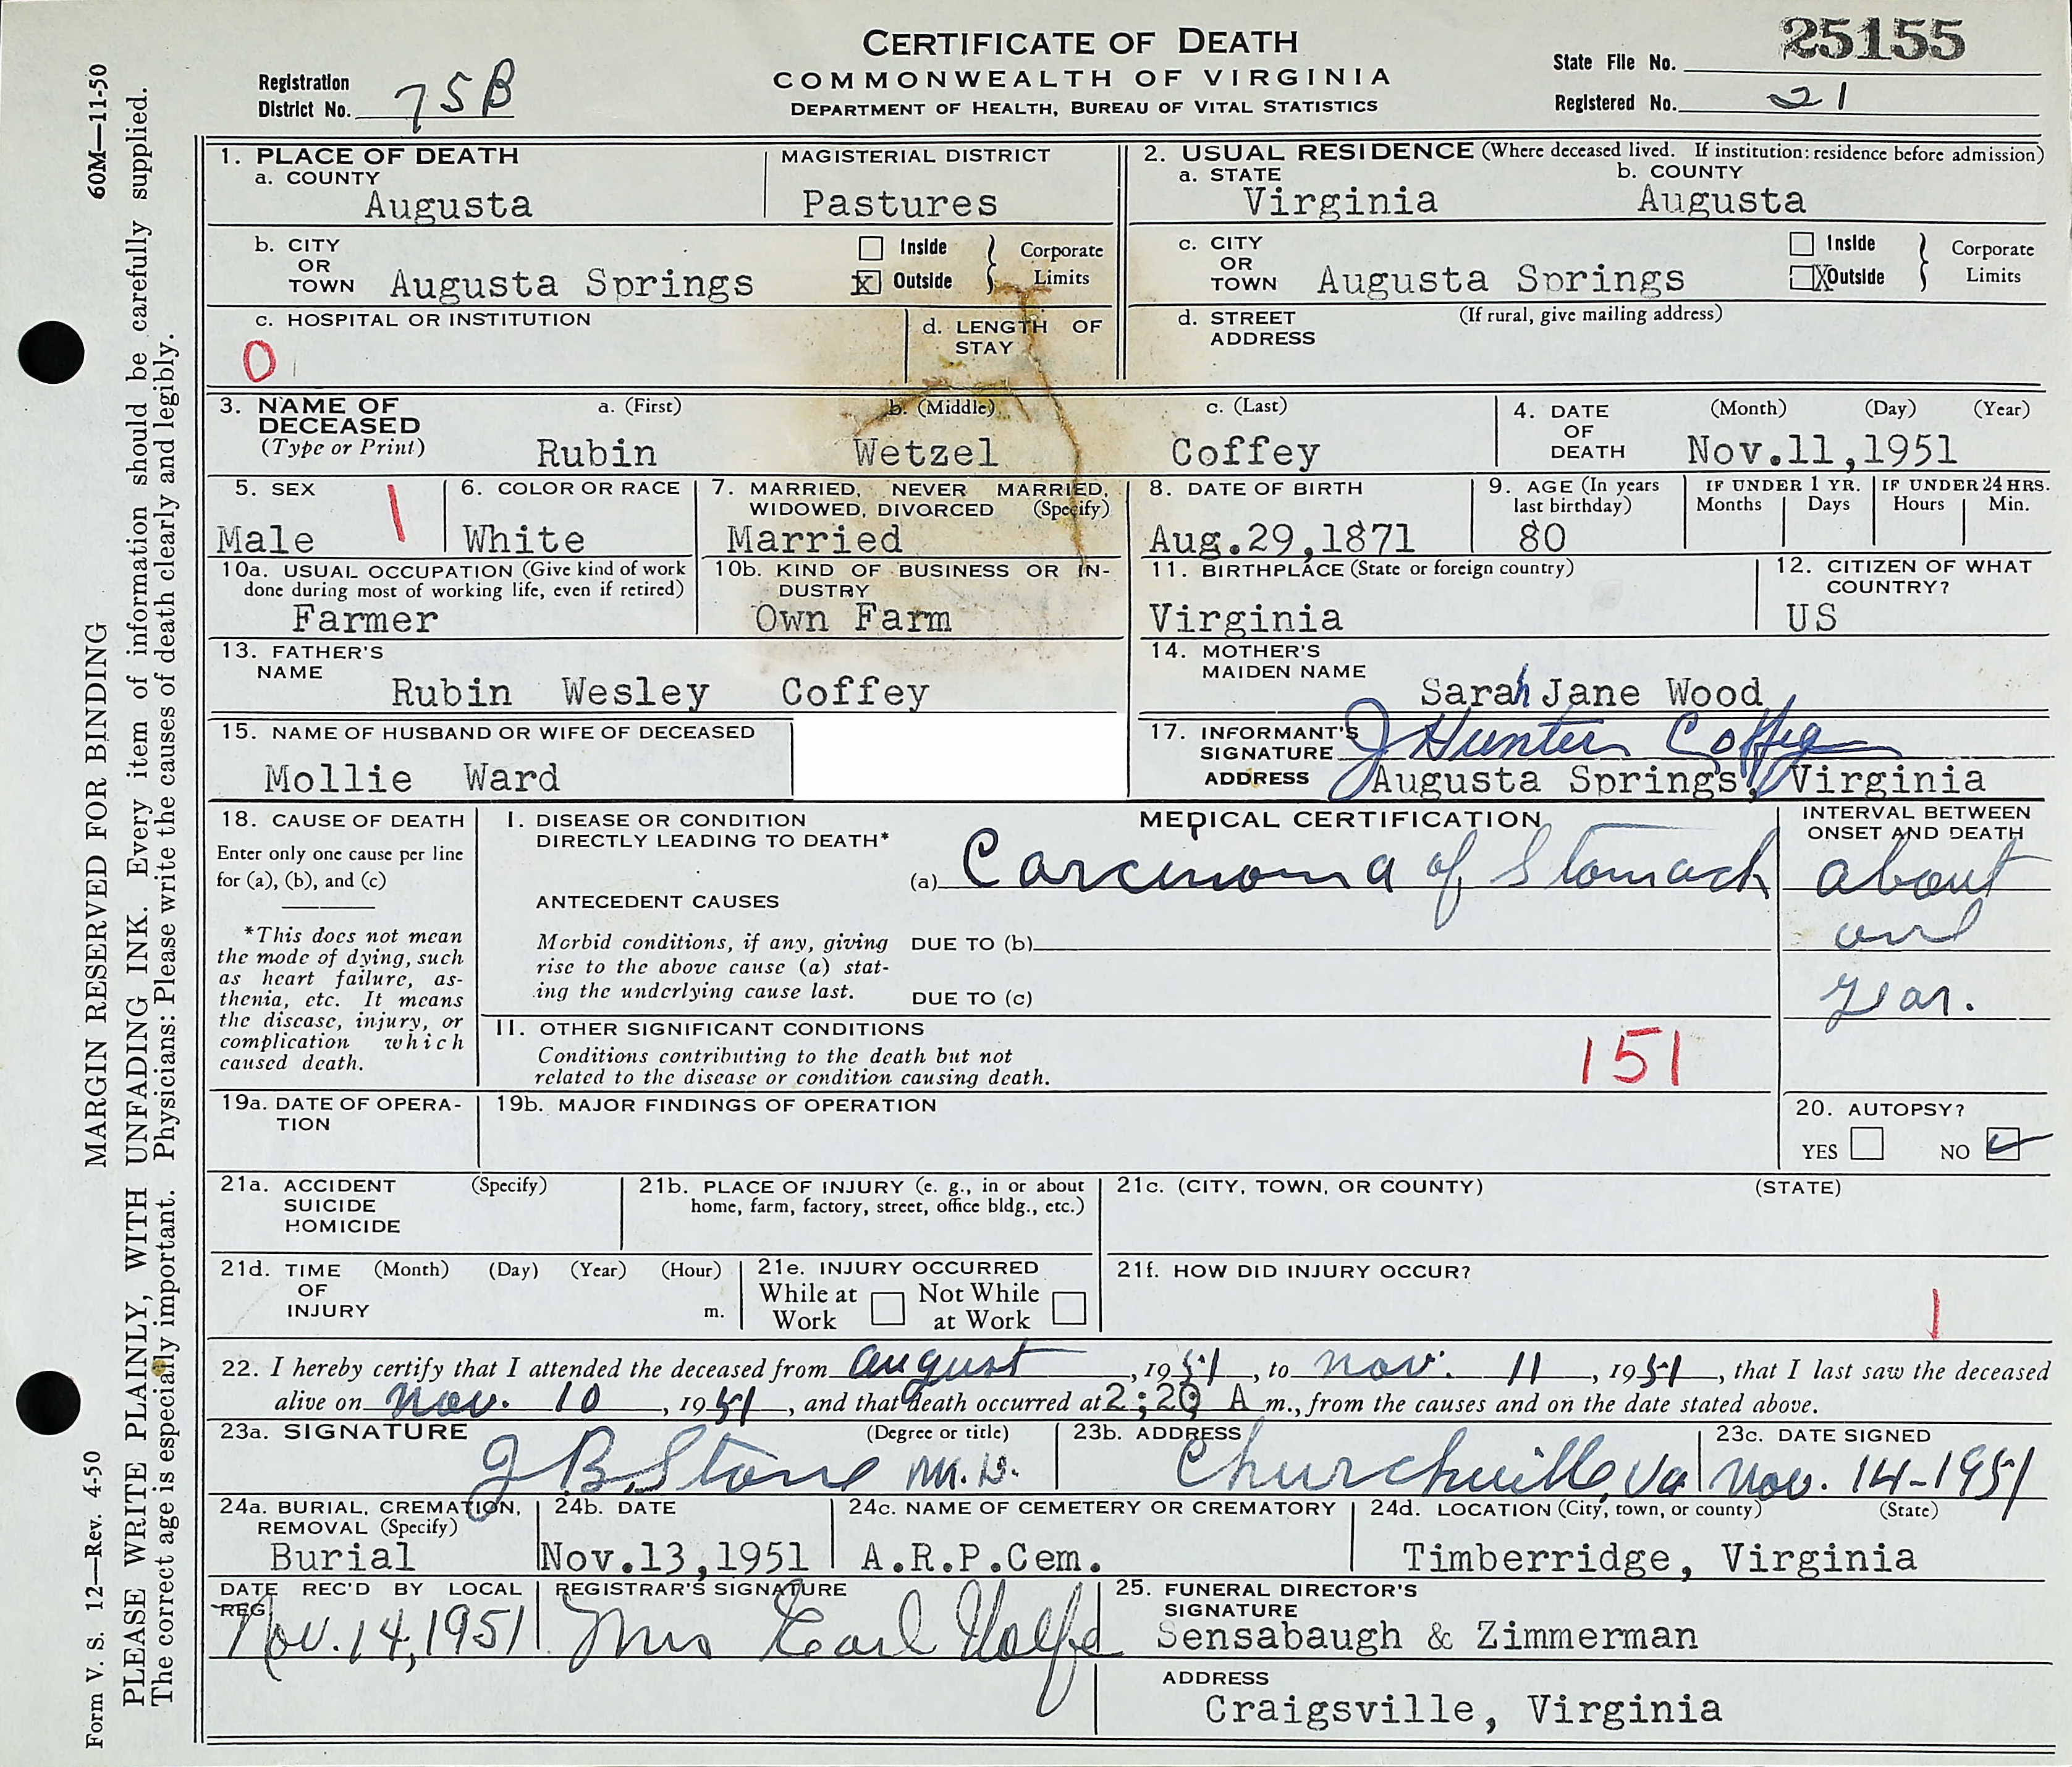 CERTIFICATE OF DEATH
COMMONWEALTH OF VIRGINIA
DEPARTMENT OF HEALTH, BUREAU OF VITAL STATISTICS
Registration District No. 75B
State File No. 25155
Registered No. 21
60M—11-50
MARGIN RESERVED FOR BINDING
PLEASE WRITE PLAINLY, WITH UNFADING INK. Every item of information should be carefully supplied.
The correct age is especially important. Physicians: Please write the causes of death clearly and legibly.
Form V. S. 12—Rev. 4-50
1. PLACE OF DEATH
a. COUNTY
Augusta
MAGISTERIAL DISTRICT
Pastures
2. USUAL RESIDENCE (Where deceased lived. If institution: residence before admission)
a. STATE
Virginia
b. COUNTY
Augusta
b. CITY OR TOWN Augusta Springs
Inside
x Outside
Corporate Limits
c. CITY OR TOWN Augusta Springs
Inside
X Outside
Corporate Limits
c. HOSPITAL OR INSTITUTION
0
d. LENGTH OF STAY
d. STREET ADDRESS
(If rural, give mailing address)
3. NAME OF DECEASED
(Type or Print)
a. (First)
Rubin
b. (Middle)
Wetzel
c. (Last)
Coffey
4. DATE OF DEATH
(Month) (Day) (Year)
Nov.11,1951
5. SEX
Male
1
6. COLOR OR RACE
White
7. MARRIED, NEVER MARRIED, WIDOWED, DIVORCED (Specify)
Married
8. DATE OF BIRTH
Aug.29,1871
9. AGE (In years last birthday)
80
IF UNDER 1 YR.
Months Days
IF UNDER 24 HRS.
Hours Min.
10a. USUAL OCCUPATION (Give kind of work done during most of working life, even if retired)
Farmer
10b. KIND OF BUSINESS OR INDUSTRY
Own Farm
11. BIRTHPLACE (State or foreign country)
Virginia
12. CITIZEN OF WHAT COUNTRY?
US
13. FATHER'S NAME
Rubin Wesley Coffey
14. MOTHER'S MAIDEN NAME
Sarah Jane Wood
15. NAME OF HUSBAND OR WIFE OF DECEASED
Mollie Ward
17. INFORMANT'S SIGNATURE J Hunter Coffey
ADDRESS Augusta Springs, Virginia
18. CAUSE OF DEATH
Enter only one cause per line for (a), (b), and (c)
*This does not mean the mode of dying, such as heart failure, asthenia, etc. It means the disease, injury, or complication which caused death.
MEDICAL CERTIFICATION
I. DISEASE OR CONDITION DIRECTLY LEADING TO DEATH*
(a) Carcinoma of Stomach
ANTECEDENT CAUSES
Morbid conditions, if any, giving rise to the above cause (a) stating the underlying cause last.
DUE TO (b)
DUE TO (c)
INTERVAL BETWEEN ONSET AND DEATH
about
one
year.
II. OTHER SIGNIFICANT CONDITIONS
Conditions contributing to the death but not related to the disease or condition causing death.
151
19a. DATE OF OPERATION
19b. MAJOR FINDINGS OF OPERATION
20. AUTOPSY?
YES NO ✓
21a. ACCIDENT SUICIDE HOMICIDE (Specify)
21b. PLACE OF INJURY (e. g., in or about home, farm, factory, street, office bldg., etc.)
21c. (CITY, TOWN, OR COUNTY) (STATE)
21d. TIME OF INJURY (Month) (Day) (Year) (Hour) m.
21e. INJURY OCCURRED
While at Work Not While at Work
21f. HOW DID INJURY OCCUR?
1
22. I hereby certify that I attended the deceased from August, 1951, to Nov. 11, 1951, that I last saw the deceased
alive on Nov. 10, 1951, and that death occurred at 2:20 A m., from the causes and on the date stated above.
23a. SIGNATURE (Degree or title)
J B Stone M.D.
23b. ADDRESS
Churchville, Va
23c. DATE SIGNED
Nov. 14-1951
24a. BURIAL, CREMATION, REMOVAL (Specify)
Burial
24b. DATE
Nov.13,1951
24c. NAME OF CEMETERY OR CREMATORY
A.R.P.Cem.
24d. LOCATION (City, town, or county) (State)
Timberridge, Virginia
DATE REC'D BY LOCAL REG.
Nov. 14, 1951
REGISTRAR'S SIGNATURE
Mrs Earl
25. FUNERAL DIRECTOR'S SIGNATURE
Sensabaugh & Zimmerman
ADDRESS
Craigsville, Virginia